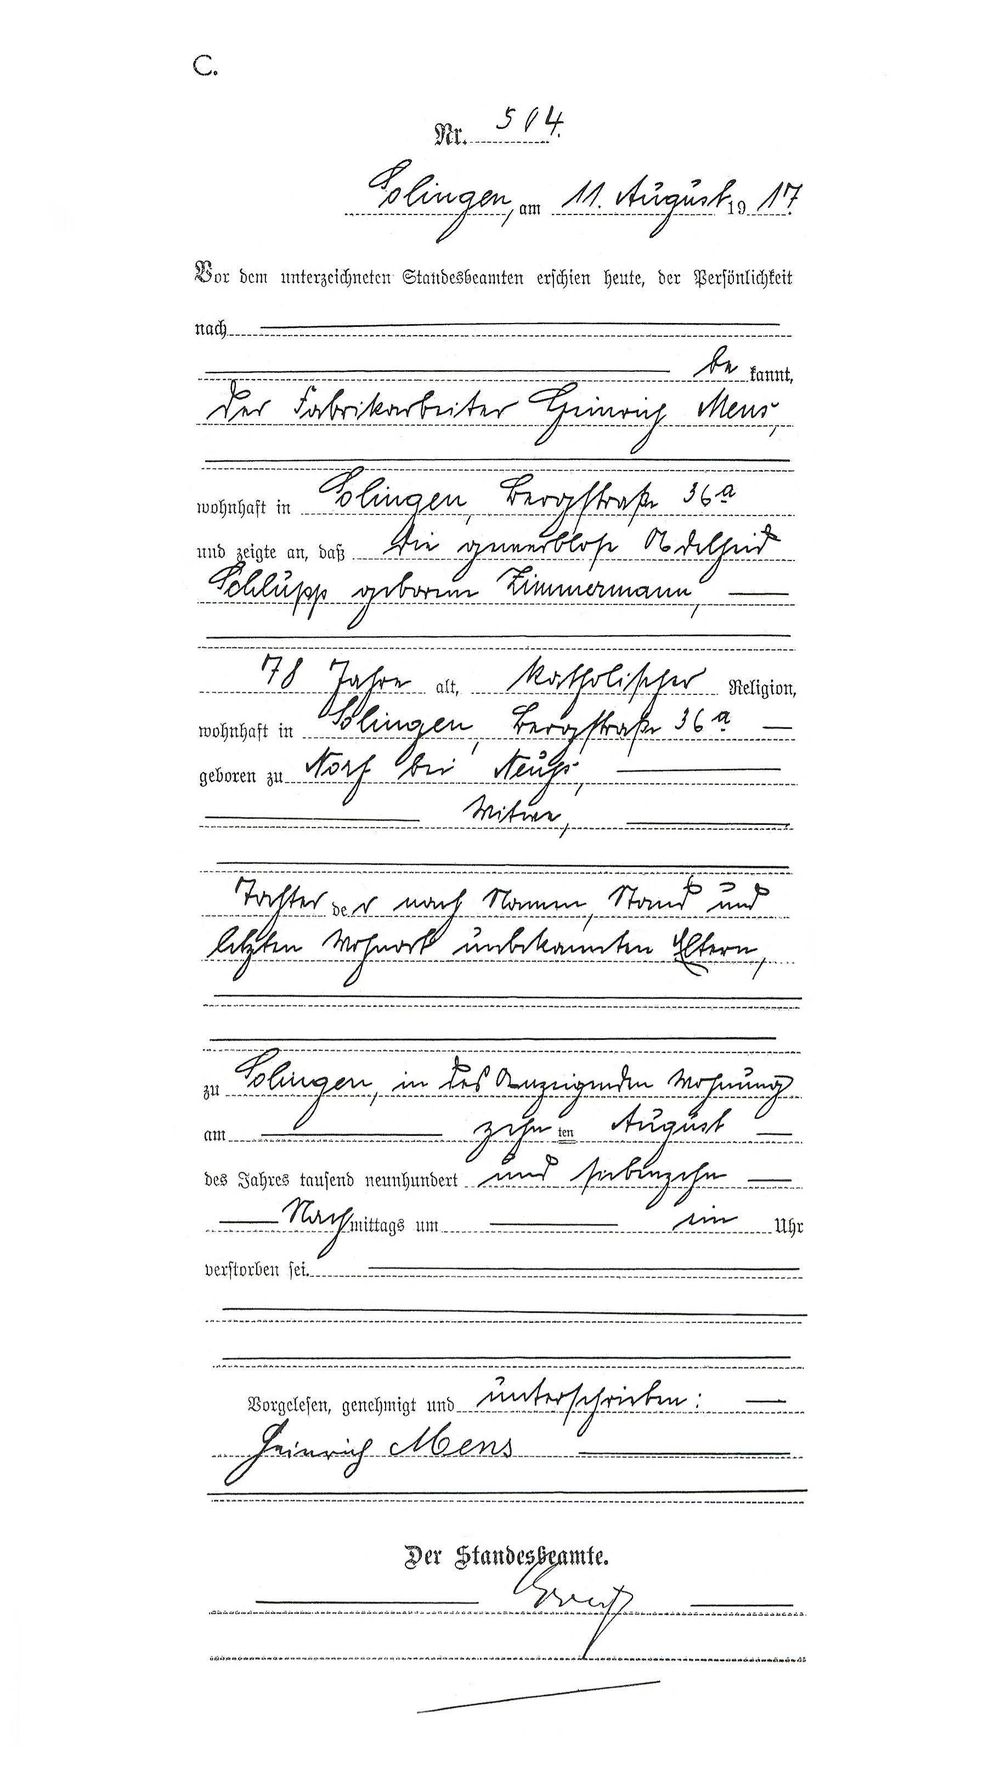 C.
Nr. 504.
Solingen, am 11. August 1917.
Vor dem unterzeichneten Standesbeamten erschien heute, der Persönlichkeit
nach
be kannt,
der Fabrikarbeiter Heinrich Mens,
wohnhaft in Solingen, Bergstraße 36a
und zeigte an, daß die gewerblose Adelheid
Schlupp geborene Zimmermann,
78 Jahre alt, katholischer Religion,
wohnhaft in Solingen, Bergstraße 36a
geboren zu Norf bei Neuss,
Witwe,
Tochter der nach Namen, Stand und
letzten Wohnort unbekannten Eltern,
zu Solingen, in des Anzeigenden Wohnung
am zehn ten August
des Jahres tausend neunhundert und siebenzehn
Nachmittags um ein Uhr
verstorben sei.
Vorgelesen, genehmigt und unterschrieben:
Heinrich Mens
Der Standesbeamte.